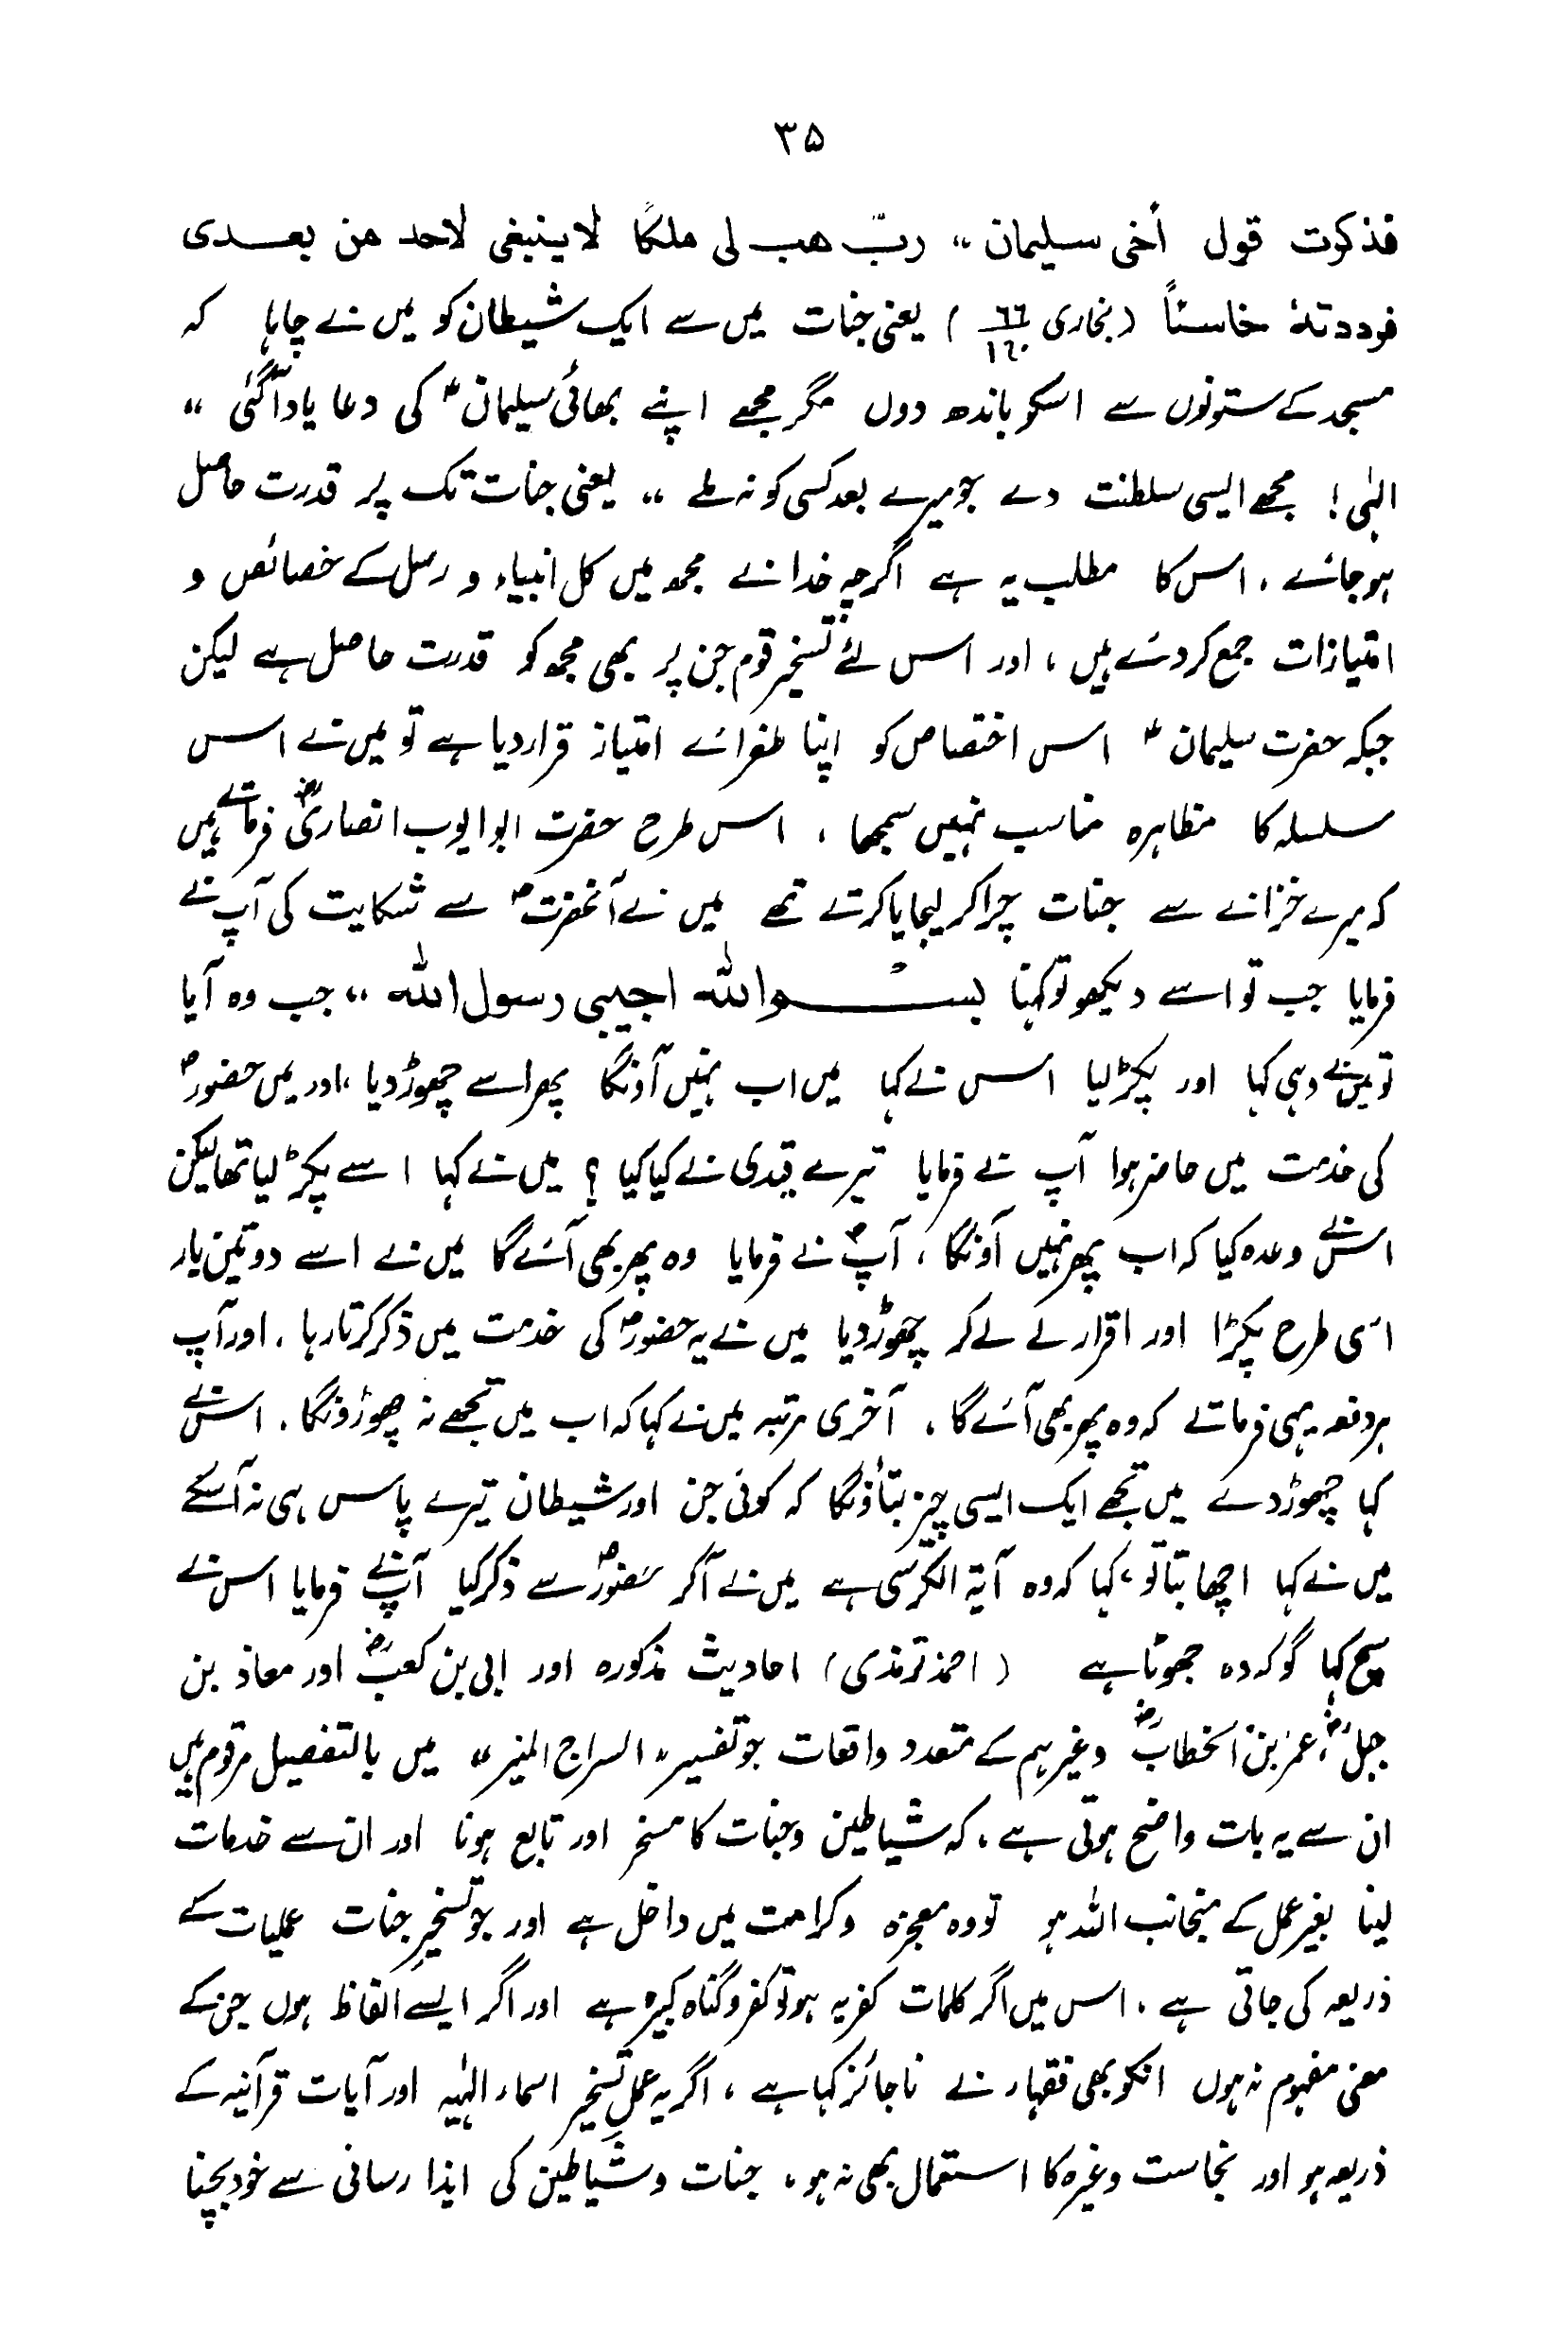 ۳۵
فذکرت قول أخی سلیمان ،، ربّ ھب لی ملکًا لاینبغی لاحد من بعدی
فرددتہٗ خاسئاً (بخاری ۶۶/۱۶۰) یعنی جنات میں سے ایک شیطان کو میں نے چاہا کہ
مسجد کے ستونوں سے اسکو باندھ دوں مگر مجھے اپنے بھائی سلیمانؑ کی دعا یاد آگئی ،،
الٰہی! مجھے ایسی سلطنت دے جو میرے بعد کسی کو نہ ملے ،، یعنی جنات تک پر قدرت حاصل
ہو جائے ، اس کا مطلب یہ ہے اگرچہ خدا نے مجھ میں کل انبیاء و رسل کے خصائص و
امتیازات جمع کر دئے ہیں ، اور اس لئے تسخیر قوم جن پر بھی مجھ کو قدرت حاصل ہے لیکن
جبکہ حضرت سلیمانؑ اس اختصاص کو اپنا طغرائے امتیاز قرار دیا ہے تو میں نے اس
سلسلہ کا مظاہرہ مناسب نہیں سمجھا ، اس طرح حضرت ابو ایوب انصاریؓ فرماتے ہیں
کہ میرے خزانے سے جنات چرا کر لیجایا کرتے تھے میں نے آنحضرتؐ سے شکایت کی آپ نے
فرمایا جب تو اسے دیکھو تو کہنا بسم اللہ اجیبی رسول اللہ ،، جب وہ آیا
تو میں نے وہی کہا اور پکڑ لیا اس نے کہا میں اب نہیں آونگا پھر اسے چھوڑ دیا ، اور میں حضورؐ
کی خدمت میں حاضر ہوا آپ نے فرمایا تیرے قیدی نے کیا کیا ؟ میں نے کہا اسے پکڑ لیا تھا لیکن
اس نے وعدہ کیا کہ اب پھر نہیں آونگا ، آپؐ نے فرمایا وہ پھر بھی آئے گا میں نے اسے دو تین بار
اسی طرح پکڑا اور اقرار لے لے کر چھوڑ دیا میں نے یہ حضورؐ کی خدمت میں ذکر کرتا رہا ، اور آپ
ہر دفعہ یہی فرماتے کہ وہ پھر بھی آئے گا ، آخری مرتبہ میں نے کہا کہ اب میں تجھے نہ چھوڑونگا ، اس نے
کہا چھوڑ دے میں تجھے ایک ایسی چیز بتاؤنگا کہ کوئی جن اور شیطان تیرے پاس ہی نہ آسکے
میں نے کہا اچھا بتاتو ، کہا کہ وہ آیۃ الکرسی ہے میں نے آکر حضورؐ سے ذکر کیا آپ نے فرمایا اس نے
سچ کہا گو کہ وہ جھوٹا ہے (احمد ترمذی) احادیث مذکورہ اور ابی بن کعبؓ اور معاذ بن
جبلؓ ، عمر بن الخطابؓ وغیرہم کے متعدد واقعات جو تفسیر ،،السراج المنیر،، میں بالتفصیل مرقوم ہیں
ان سے یہ بات واضح ہوتی ہے ، کہ شیاطین و جنات کا مسخر اور تابع ہونا اور ان سے خدمات
لینا بغیر عمل کے منجانب اللہ ہو تو وہ معجزہ و کرامت میں داخل ہے اور جو تسخیرِ جنات عملیات کے
ذریعہ کی جاتی ہے ، اس میں اگر کلمات کفریہ ہو تو کفر و گناہ کبیرہ ہے اور اگر ایسے الفاظ ہوں جن کے
معنی مفہوم نہ ہوں انکو بھی فقہاء نے ناجائز کہا ہے ، اگر یہ عملِ تسخیر اسماء الٰہیہ اور آیات قرآنیہ کے
ذریعہ ہو اور نجاست وغیرہ کا استعمال بھی نہ ہو ، جنات و شیاطین کی ایذا رسانی سے خود بچنا